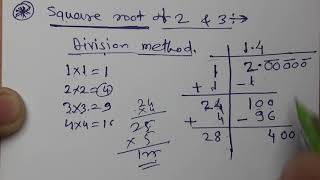 Square root of 2 & 3 :→
Division method.
1×1=1
2×2=4
3×3=9
4×4=16
24
×4
25
×5
1.4
1 2.00000
+1 -1
24 100
+4 -96
28 400